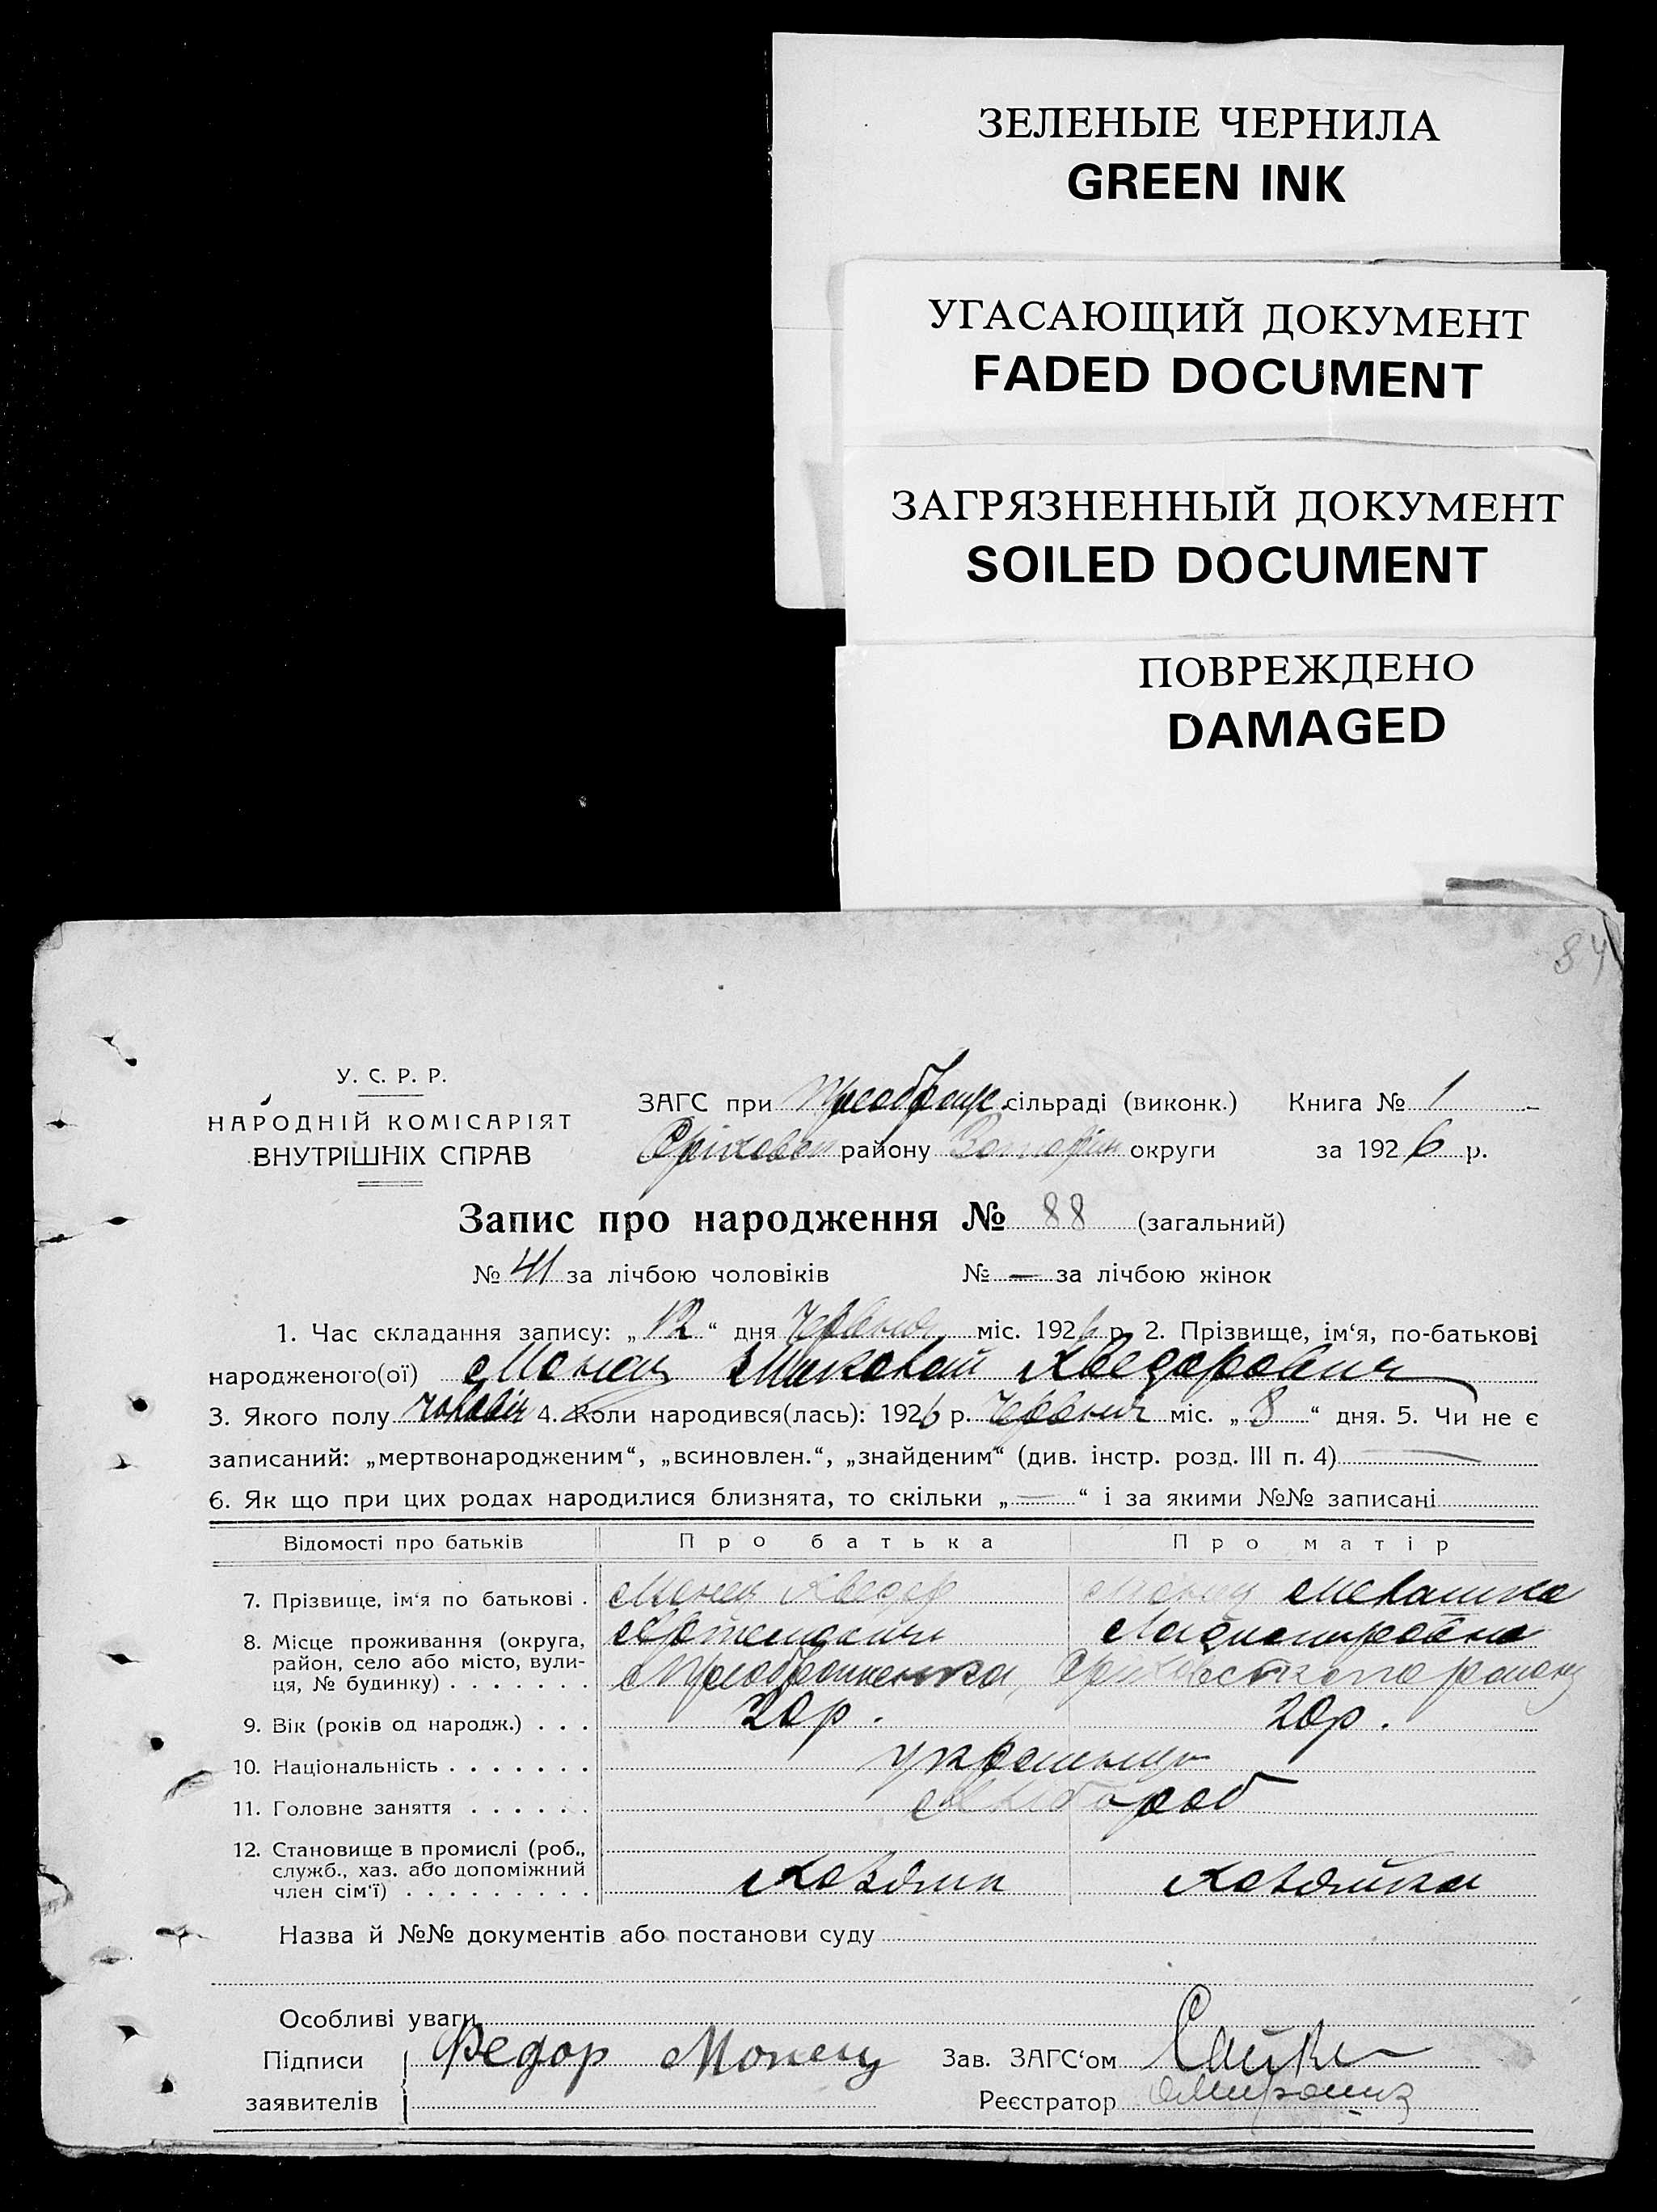 ЗЕЛЕНЫЕ ЧЕРНИЛА
GREEN INK
УГАСАЮЩИЙ ДОКУМЕНТ
FADED DOCUMENT
ЗАГРЯЗНЕННЫЙ ДОКУМЕНТ
SOILED DOCUMENT
ПОВРЕЖДЕНО
DAMAGED
84
У. С. Р. Р.
НАРОДНІЙ КОМІСАРІЯТ
ВНУТРІШНІХ СПРАВ
ЗАГС при сільраді (виконк.) Книга № 1
району округи за 1926 р.
Запис про народження № 88 (загальний)
№ 41 за лічбою чоловіків № — за лічбою жінок
1. Час складання запису: „12“ дня Червня міс. 1926 р. 2. Прізвище, ім‘я, по-батькові
народженого(ої) Монец Миколай Хведорович
3. Якого полу чоловіч 4. Коли народився(лась): 1926 р. Червня міс. „8“ дня. 5. Чи не є
записаний: „мертвонародженим“, „всиновлен.“, „знайденим“ (див. інстр. розд. III п. 4) —
6. Як що при цих родах народилися близнята, то скільки „—“ і за якими №№ записані
Відомості про батьків Про батька Про матір
7. Прізвище, ім‘я по батькові . Монец Хведор Монец
8. Місце проживання (округа,
район, село або місто, вули-
ця, № будинку) . . . . . . . Преображенка, Оріховского району
9. Вік (років од народж.) . . . 20р. 20р.
10. Національність . . . . . . . українці
11. Головне заняття . . . . . . Хлібороб
12. Становище в промислі (роб.,
служб., хаз. або допоміжний
член сім‘ї) . . . . . . . . . Хазяин Хазяйка
Назва й №№ документів або постанови суду
Особливі уваги
Підписи Федор Монец Зав. ЗАГС‘ом
заявителів Реєстратор